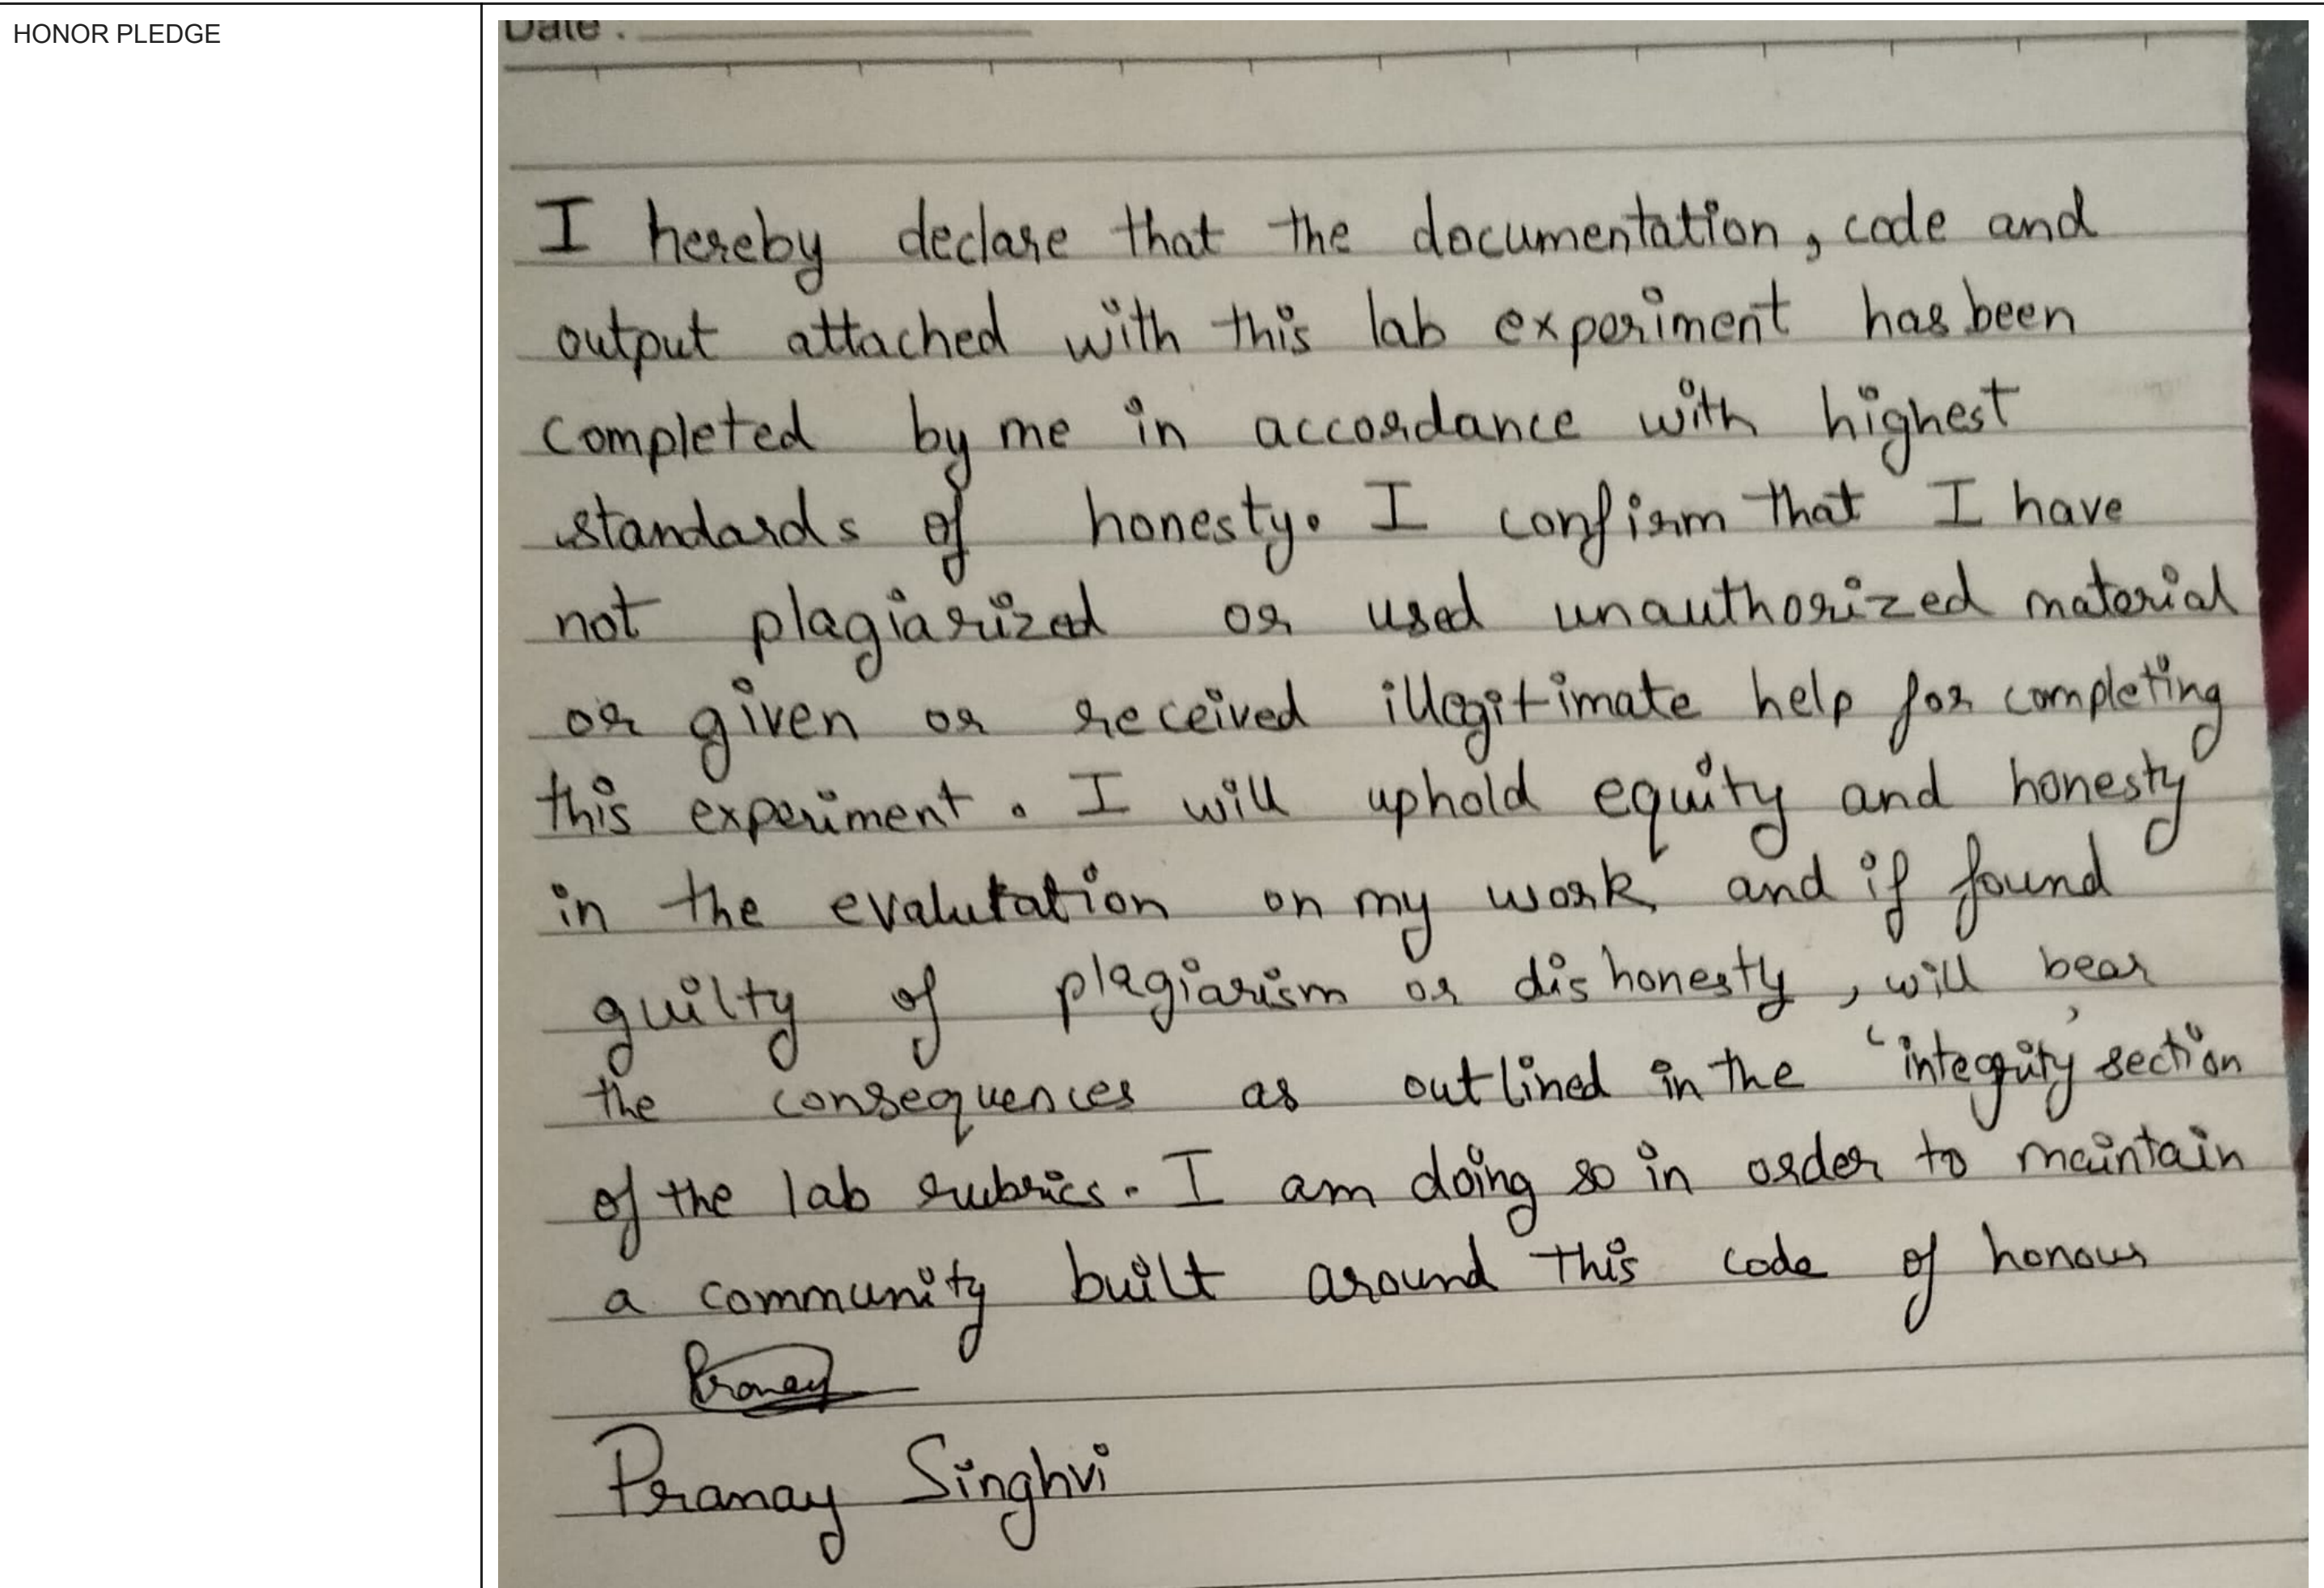 HONOR PLEDGE
Date :
I hereby declare that the documentation, code and
output attached with this lab experiment has been
completed by me in accordance with highest
standards of honesty. I confirm that I have
not plagiarized or used unauthorized material
or given or received illegitimate help for completing
this experiment. I will uphold equity and honesty
in the evalutation on my work and if found
guilty of plagiarism or dishonesty, will bear
the consequences as outlined in the 'integrity' section
of the lab rubrics. I am doing so in order to maintain
a community built around this code of honour
Pranay
Pranay Singhvi